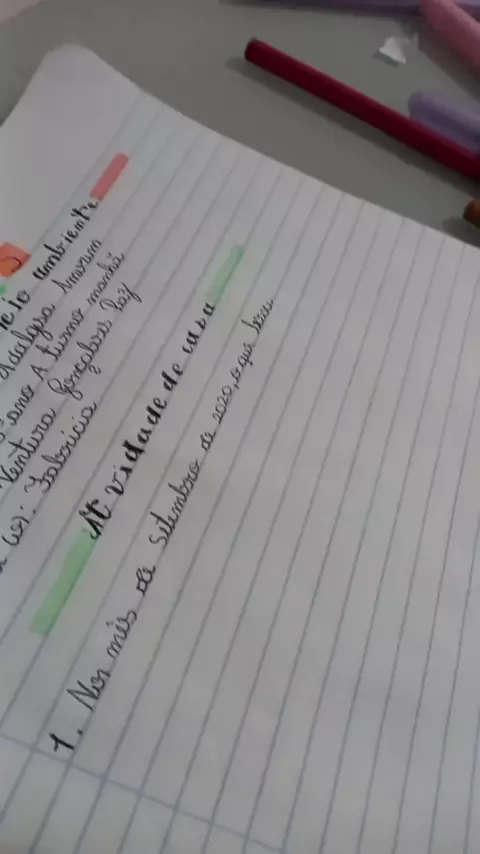 meio ambiente
Adalgisa Amorim
ano A turno manhã
Ventura Gonçalves Rey
Fabrícia
Atividade de casa
1. Nos mês de Setembro de 2020, o que